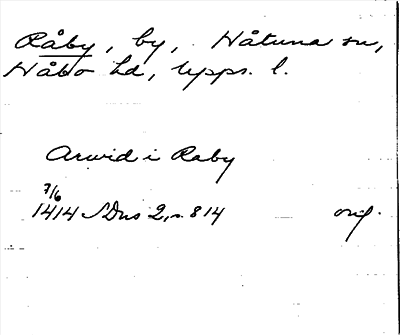 Råby, by, Håtuna sn,
Håbo hd, Upps. l.
Arwid i Raby
7/6
1414 SDns 2, s. 814 orig.